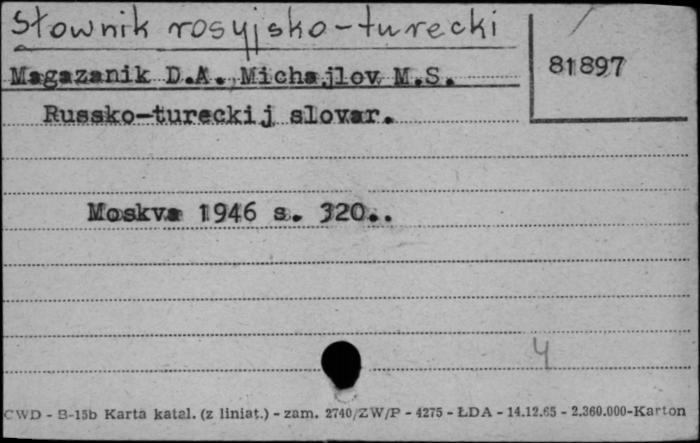 Słownik rosyjsko-turecki
81897
Magazanik D.A., Michajlov M.S.
Russko-tureckij slovar.
Moskva 1946 s. 320..
4
CWD - B-15b Karta katal. (z liniat.) - zam. 2740/ZW/P - 4275 - ŁDA - 14.12.65 - 2.360.000-Karton